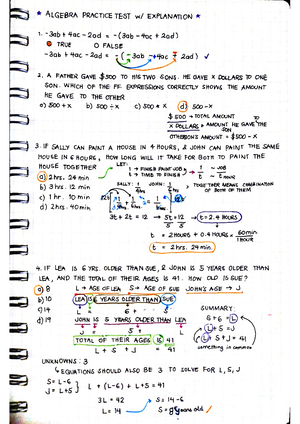 ★ ALGEBRA PRACTICE TEST w/ EXPLANATION ★
1. -3ab + 4ac - 2ad = -(3ab - 4ac + 2ad)
TRUE O FALSE
-3ab + 4ac - 2ad = -(-3ab - +4ac - 2ad) ✓
2. A FATHER GAVE $500 TO HIS TWO SONS. HE GAVE X DOLLARS TO ONE
SON. WHICH OF THE FF. EXPRESSIONS CORRECTLY SHOWS THE AMOUNT
HE GAVE TO THE OTHER
a) 500 + X b) 500 ÷ X c) 500 • X d) 500 - X
$500 → TOTAL AMOUNT
X DOLLARS → AMOUNT HE GAVE THE SON
OTHER SON'S AMOUNT = $500 - X
3. IF SALLY CAN PAINT A HOUSE IN 4 HOURS, & JOHN CAN PAINT THE SAME
HOUSE IN 6 HOURS, HOW LONG WILL IT TAKE FOR BOTH TO PAINT THE
HOUSE TOGETHER
LET:
a) 2 hrs. 24 min
1 → FINISH PAINT JOB
1/t → JOB
b) 3 hrs. 12 min
t → TIME TO FINISH
c) 1 hr. 10 min
SALLY: JOHN:
TOGETHER MEANS COMBINATION
OF BOTH OF THEM
d) 2 hrs. 40 min
3t + 2t = 12 → 5t = 12 → t = 2.4 HOURS
t = 2 HOURS + 0.4 HOURS × 60 min / 1 HOUR
t = 2 hrs. 24 min
4. IF LEA IS 6 YRS. OLDER THAN SUE, & JOHN IS 5 YEARS OLDER THAN
LEA, AND THE TOTAL OF THEIR AGES IS 41. HOW OLD IS SUE?
a) 8 L → AGE OF LEA S → AGE OF SUE JOHN'S AGE → J
b) 10 LEA IS 6 YEARS OLDER THAN SUE
SUMMARY:
c) 14 L = 6 + S
S + 6 = L
d) 19 JOHN IS 5 YEARS OLDER THAN LEA
L + 5 = J
J = 5 + L
L + S + J = 41
TOTAL OF THEIR AGES IS 41
something in common
L + S + J = 41
UNKNOWNS: 3
↳ EQUATIONS SHOULD ALSO BE 3 TO SOLVE FOR L, S, J
S = L - 6
J = L + 5
L + (L - 6) + L + 5 = 41
3L = 42 S = 14 - 6
L = 14 S = 8 years old